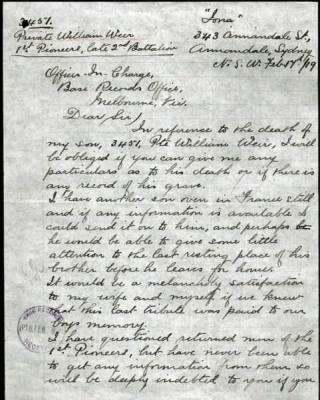 "Iona"
3451.
Private William Weir
1st Pioneers, late 3rd Battalion
343 Annandale St,
Annandale, Sydney
N.S.W. Feb 17th/19
Officer-In-Charge,
Base Records Office,
Melbourne, Vic.
Dear Sir/
In reference to the death of
my son, 3451, Pte William Weir, I will
be obliged if you can give me any
particulars as to his death or if there is
any record of his grave.
I have another son over in France still
and if any information is available I
could send it on to him, and perhaps
he would be able to give some little
attention to the last resting place of his
brother before he leaves for home.
It would be a melancholy satisfaction
to my wife and myself if we knew
that this last tribute was paid to our
boys memory.
I have questioned returned men of the
1st Pioneers, but have never been able
to get any information from them so
will be deeply indebted to you if you